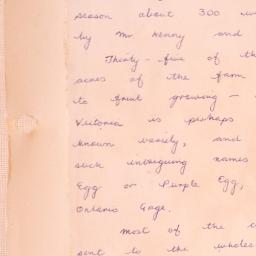 season about 300
by Mr Kenny and
Thirty-five of th
acres of the farm
to fruit growing —
Victoria is perhaps
known variety, and
such intriguing names
Egg or Purple Egg,
Ontario Gage.
Most of the
sent to the wholes